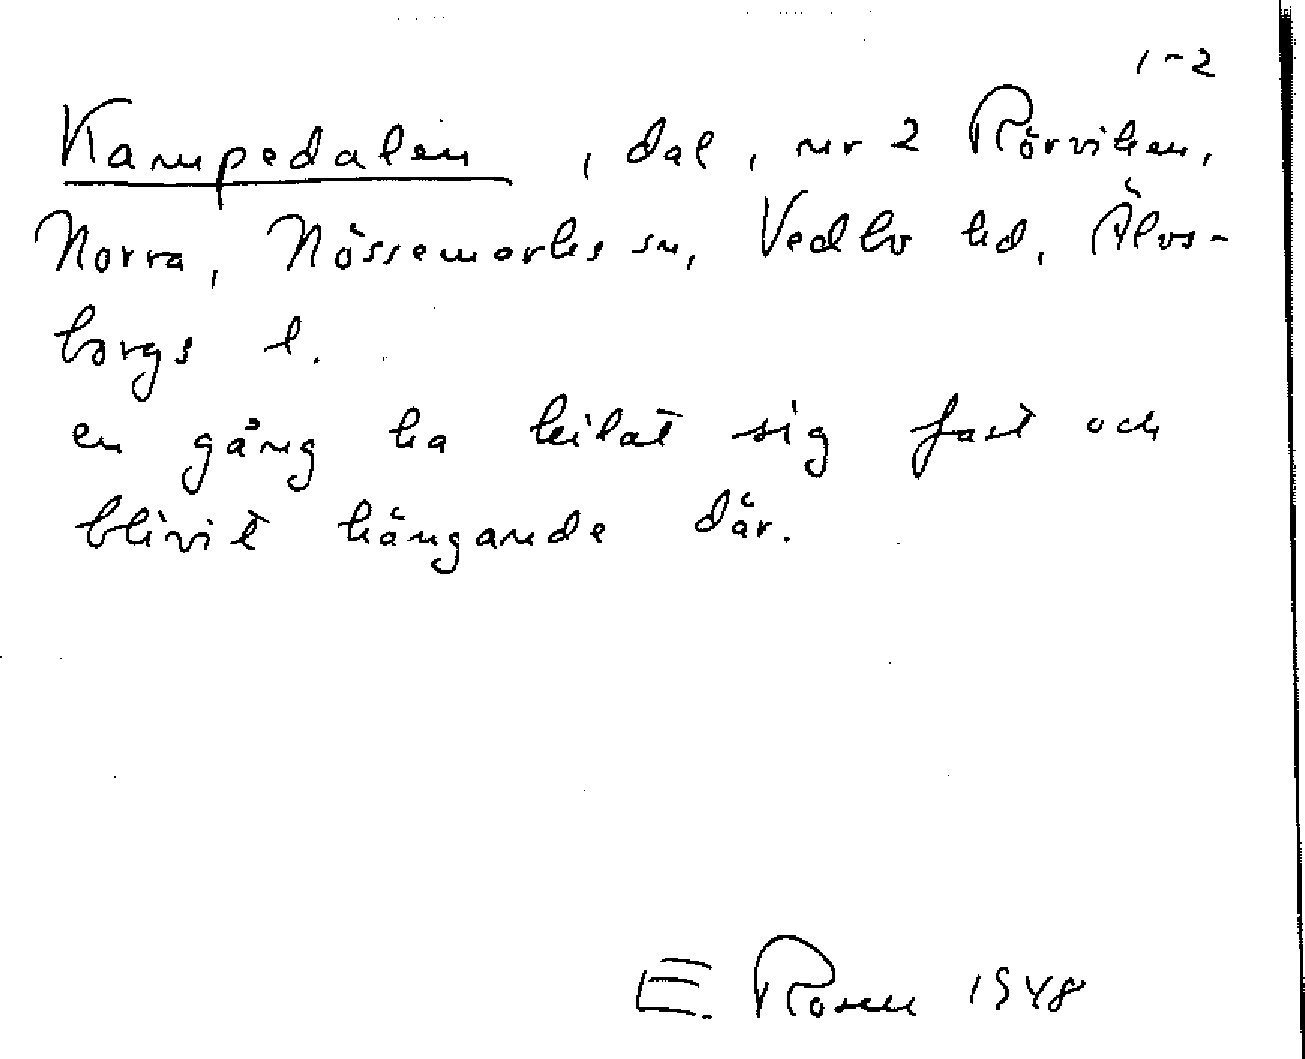 1-2
Kampedalen, dal, nr 2 Rörviken,
Norra, Nössemarks sn, Vedbo hd, Älvs-
borgs l.
en gång ha kilat sig fast och
blivit hängande där.
E. Rosen 1948